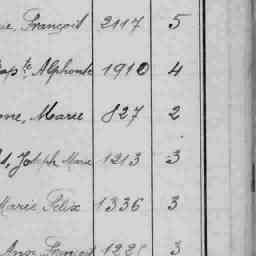 François 2117 5
Alphonse 1910 4
Marie 827 2
Joseph Marie 1213 3
Marie Félix 1336 3
Ange François 122 3